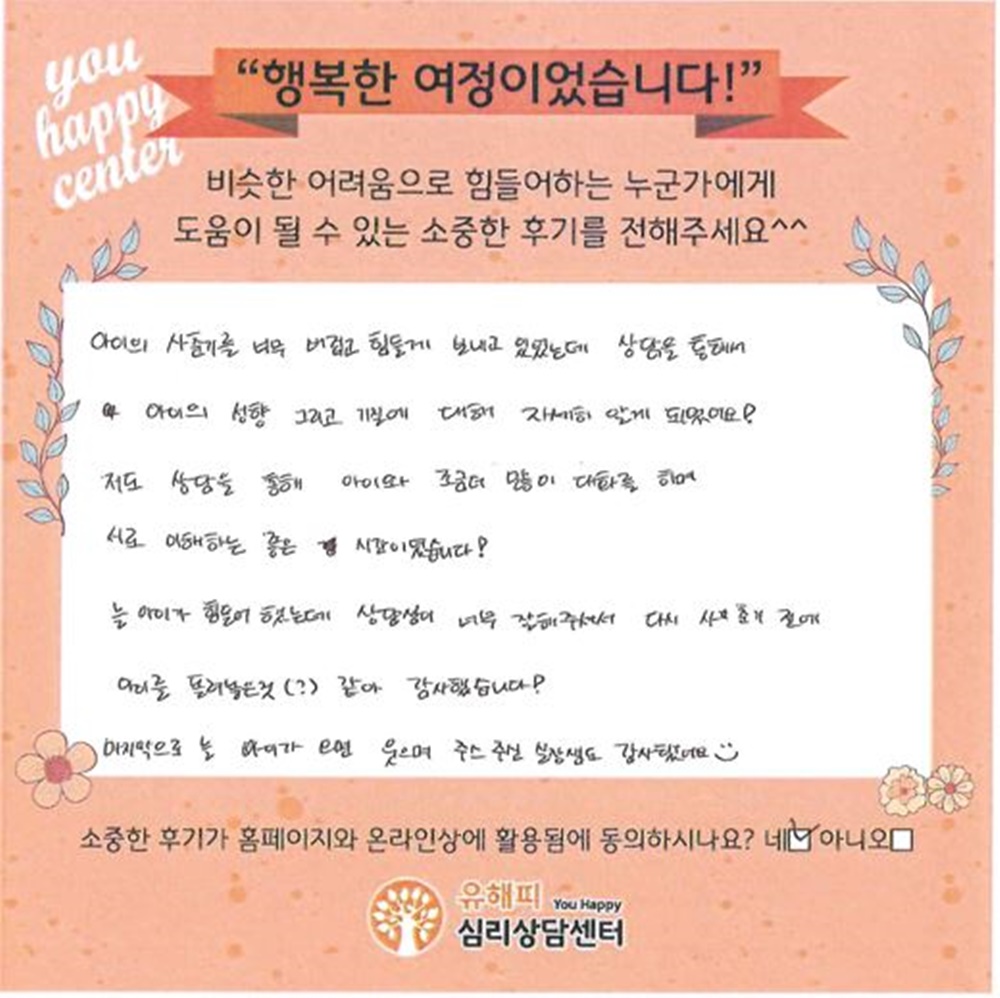 you
happy
center
“행복한 여정이었습니다!”
비슷한 어려움으로 힘들어하는 누군가에게
도움이 될 수 있는 소중한 후기를 전해주세요^^
아이의 사춘기를 너무 버겁고 힘들게 보내고 있었는데 상담을 통해서
아이의 성향 그리고 기질에 대해 자세히 알게 되었어요!
저도 상담을 통해 아이와 조금더 많이 대화를 하며
서로 이해하는 좋은 시간이였습니다!
늘 아이가 힘들어 했는데 상담쌤이 너무 잘해주셔서 다시 사춘기 전에
아이를 돌려받은것(?) 같아 감사했습니다!
마지막으로 늘 아이가 오면 웃으며 주스 주신 실장쌤도 감사했어요
소중한 후기가 홈페이지와 온라인상에 활용됨에 동의하시나요? 네 아니오
유해피 You Happy
심리상담센터